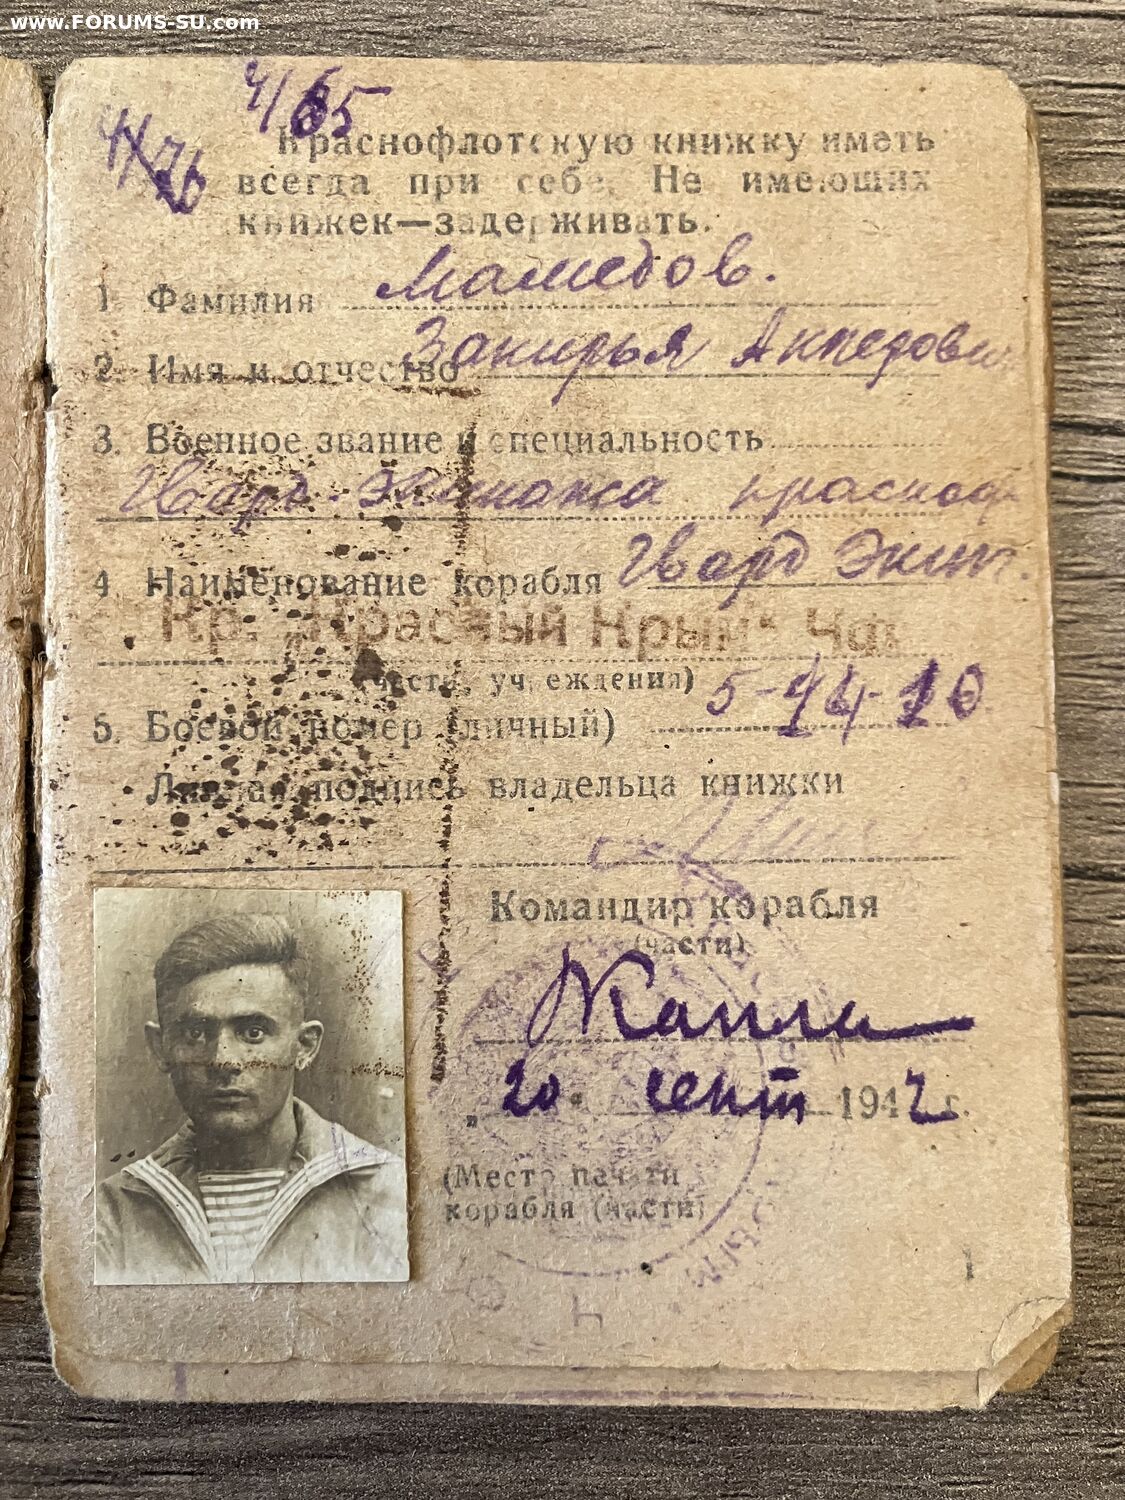 www.FORUMS-SU.com
4/65
Краснофлотскую книжку иметь
всегда при себе. Не имеющих
книжек—задерживать.
1. Фамилия Мамедов.
2. Имя и отчество Закирья
3. Военное звание и специальность
Гвард. экипажа красноф
4. Наименование корабля Гвард Экип.
Кр. "Красный Крым"
(части, учреждения)
5. Боевой номер (личный) 5-14-10
Личная подпись владельца книжки
Командир корабля
(части)
„20" сент 1942 г.
(Место печати
корабля (части)
1